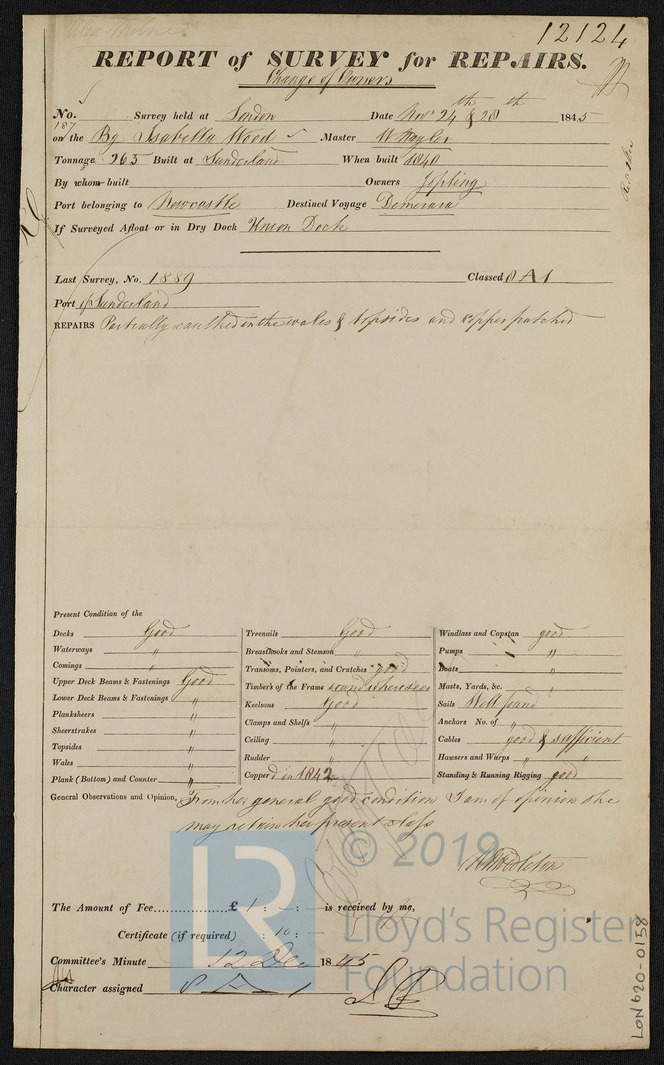 12124
REPORT of SURVEY for REPAIRS.
Change of Owners
No. 187 Survey held at London Date Nov 24th & 28th 1845
on the Bg Isabella Wood Master W Taylor
Tonnage 265 Built at Sunderland When built 1840
By whom built Owners Jopling
Port belonging to Newcastle Destined Voyage Demerara
If Surveyed Afloat or in Dry Dock Union Dock
Last Survey, No. 1889 Classed 8 A1
Port of Sunderland
REPAIRS Partially caulked in the wales & topsides and copper patched
Present Condition of the
Decks Good
Waterways "
Comings "
Upper Deck Beams & Fastenings Good
Lower Deck Beams & Fastenings "
Planksheers "
Sheerstrakes "
Topsides "
Wales "
Plank (Bottom) and Counter "
Treenails Good
Breasthooks and Stemson "
Transoms, Pointers, and Crutches good
Timbers of the Frame sound where seen
Keelsons Good
Clamps and Shelfs "
Ceiling "
Rudder "
Copper'd in 1842
Windlass and Capstan good
Pumps "
Boats "
Masts, Yards, &c. "
Sails Well found
Anchors No. of "
Cables good & sufficient
Hawsers and Warps " "
Standing & Running Rigging good
General Observations and Opinion, From her general good condition I am of opinion she
may retain her present class
W Middleton
The Amount of Fee £ 1 : - : - is received by me,
Certificate (if required) : 10 : -
Committee's Minute 12 Dec 1845
Character assigned 8 A 1
© 2019
Lloyd's Register
Foundation
LR
LON620-0158